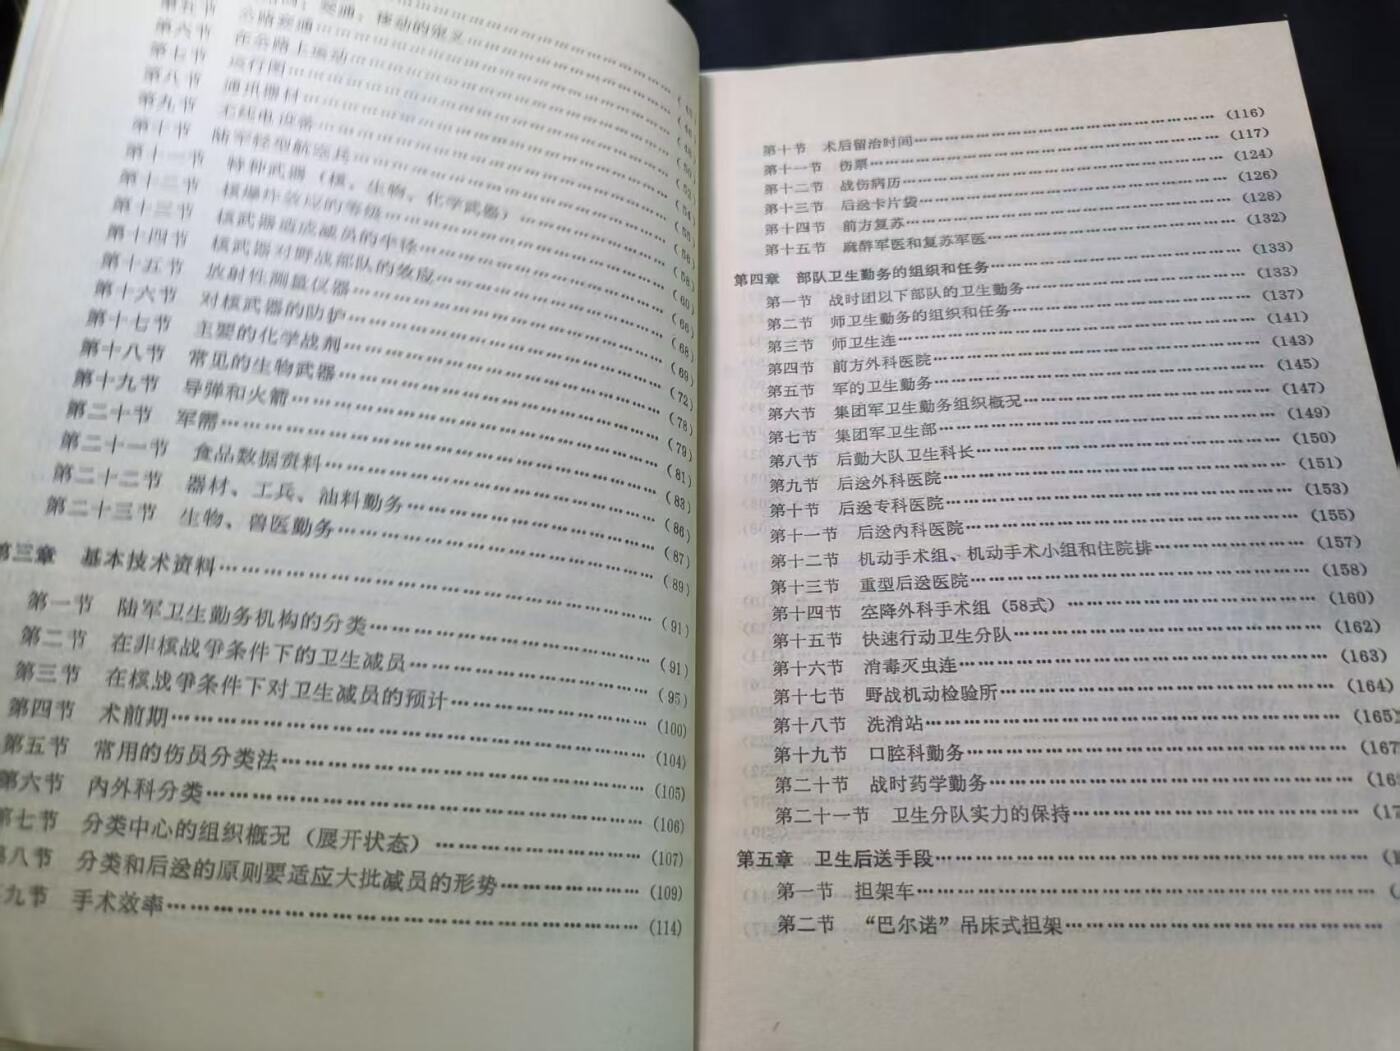 第五节
第六节 公路交通………………
第七节 在公路上运动………………
第八节 运行图………………
第九节 通讯器材………………
第十节 无线电设备………………
第十一节 陆军轻型航空兵………………
第十二节 特种武器（核、生物、化学武器）………………
第十三节 核爆炸效应的等级………………
第十四节 核武器造成减员的半径………………
第十五节 核武器对野战部队的效应………………
第十六节 放射性测量仪器………………
第十七节 对核武器的防护………………
第十八节 主要的化学战剂………………
第十九节 常见的生物武器………………
第二十节 导弹和火箭………………
第二十一节 军需………………
第二十二节 食品数据资料………………
第二十三节 器材、工兵、油料勤务………………
生物、兽医勤务………………（87）
第三章 基本技术资料………………（89）
第一节 陆军卫生勤务机构的分类………………（91）
第二节 在非核战争条件下的卫生减员………………（91）
第三节 在核战争条件下对卫生减员的预计………………（95）
第四节 术前期………………（100）
第五节 常用的伤员分类法………………（104）
第六节 内外科分类………………（105）
第七节 分类中心的组织概况（展开状态）………………（106）
第八节 分类和后送的原则要适应大批减员的形势………………（109）
九节 手术效率………………（114）
第十节 术后留治时间………………（116）
第十一节 伤票………………（117）
第十二节 战伤病历………………（124）
第十三节 后送卡片袋………………（126）
第十四节 前方复苏………………（128）
第十五节 麻醉军医和复苏军医………………（132）
第四章 部队卫生勤务的组织和任务………………（133）
第一节 战时团以下部队的卫生勤务………………（133）
第二节 师卫生勤务的组织和任务………………（137）
第三节 师卫生连………………（141）
第四节 前方外科医院………………（143）
第五节 军的卫生勤务………………（145）
第六节 集团军卫生勤务组织概况………………（147）
第七节 集团军卫生部………………（149）
第八节 后勤大队卫生科长………………（150）
第九节 后送外科医院………………（151）
第十节 后送专科医院………………（153）
第十一节 后送内科医院………………（155）
第十二节 机动手术组、机动手术小组和住院排………………（157）
第十三节 重型后送医院………………（158）
第十四节 空降外科手术组（58式）………………（160）
第十五节 快速行动卫生分队………………（162）
第十六节 消毒灭虫连………………（163）
第十七节 野战机动检验所………………（164）
第十八节 洗消站………………（165）
第十九节 口腔科勤务………………（167
第二十节 战时药学勤务………………（16
第二十一节 卫生分队实力的保持………………（17
第五章 卫生后送手段………………（1
第一节 担架车………………
第二节 “巴尔诺”吊床式担架………………